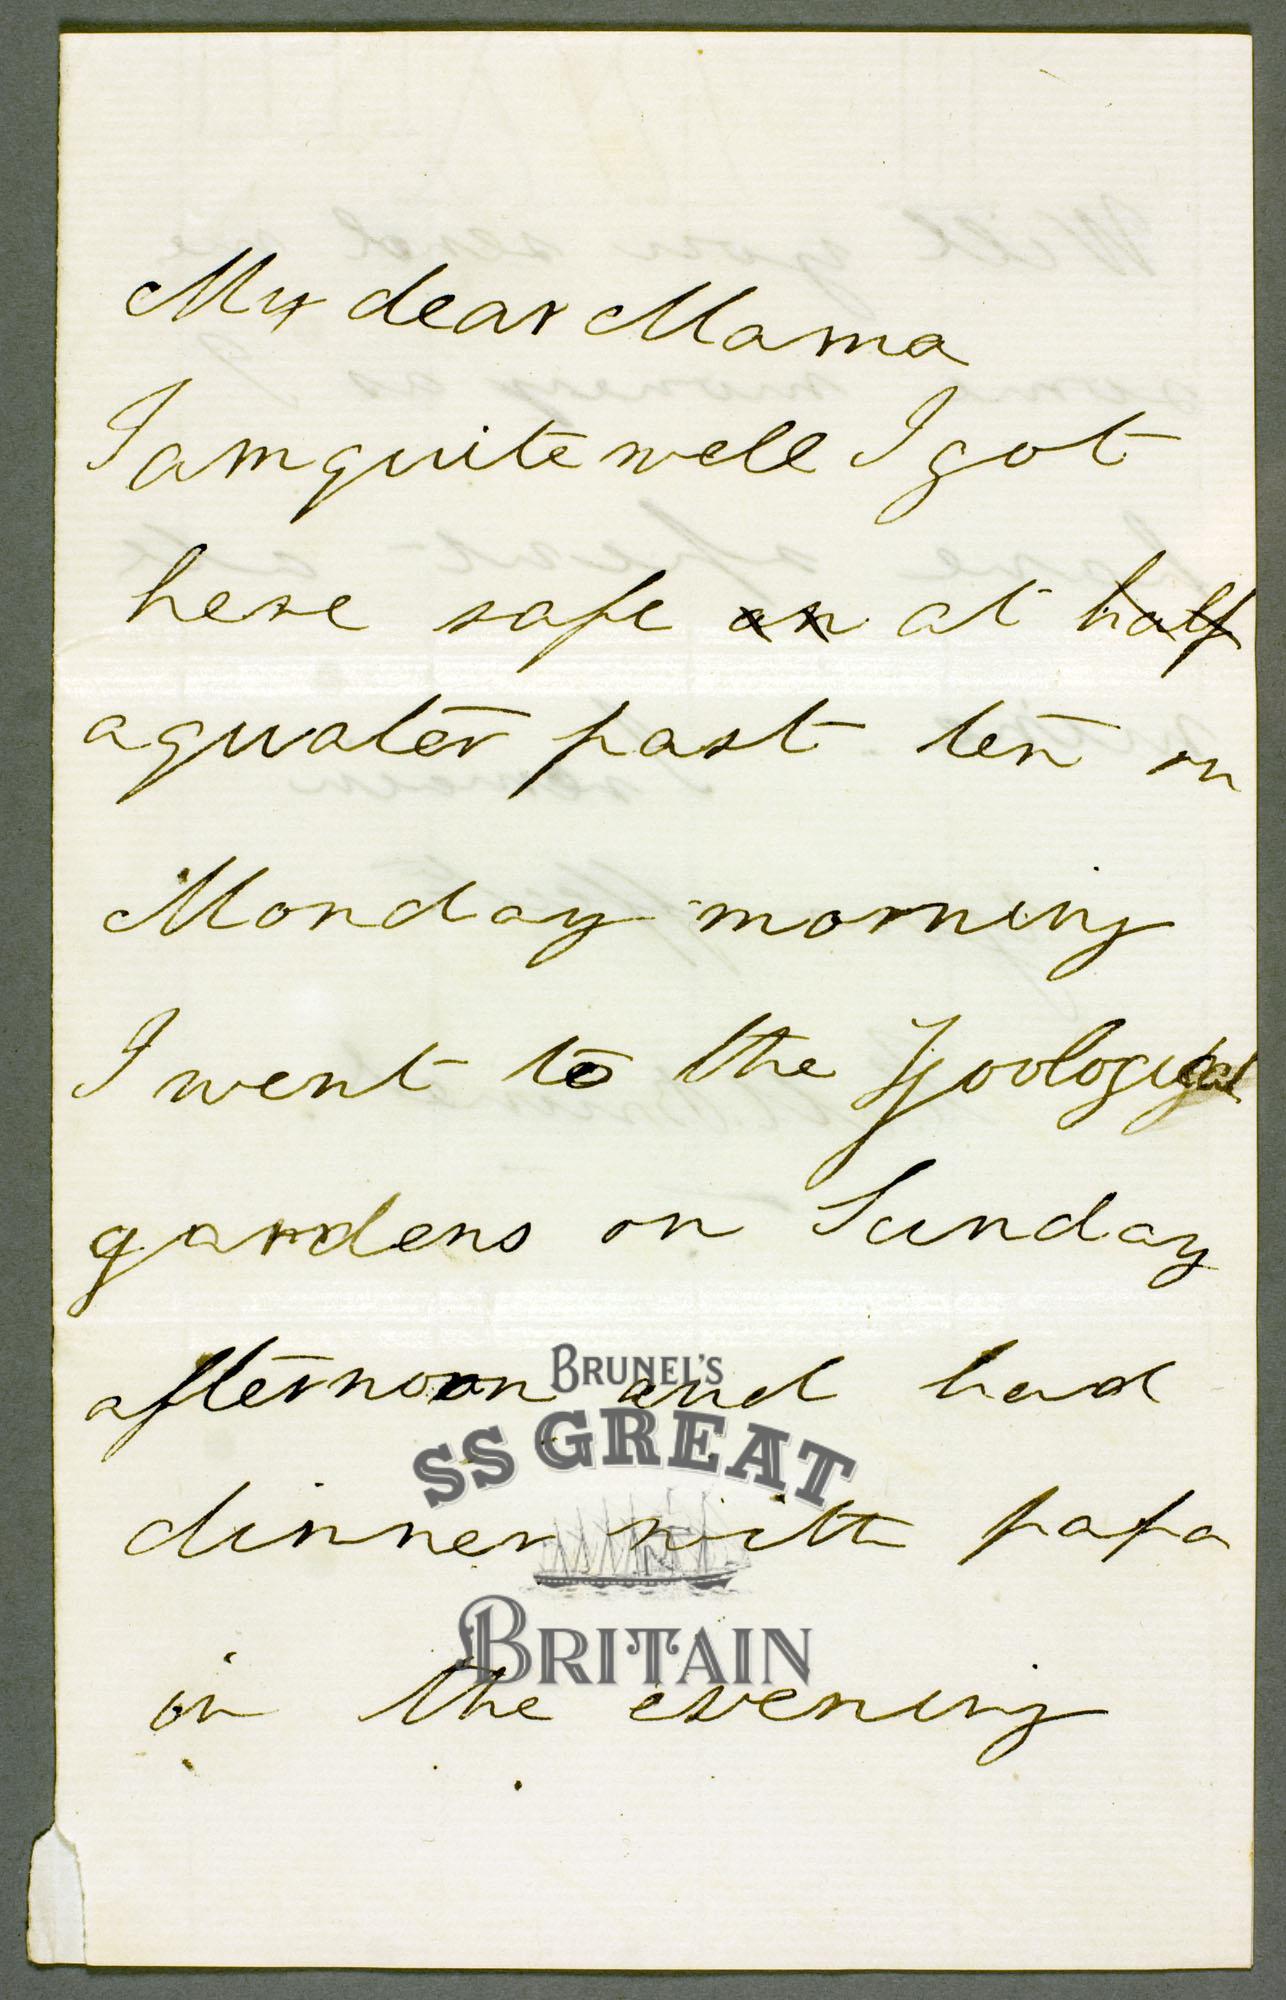 My dear Mama
I am quite well I got
here safe on at half
a quater past ten on
Monday morning
I went to the Zoological
gardens on Sunday
afternoon and had
dinner with papa
in the evening
BRUNEL'S
SS GREAT
BRITAIN